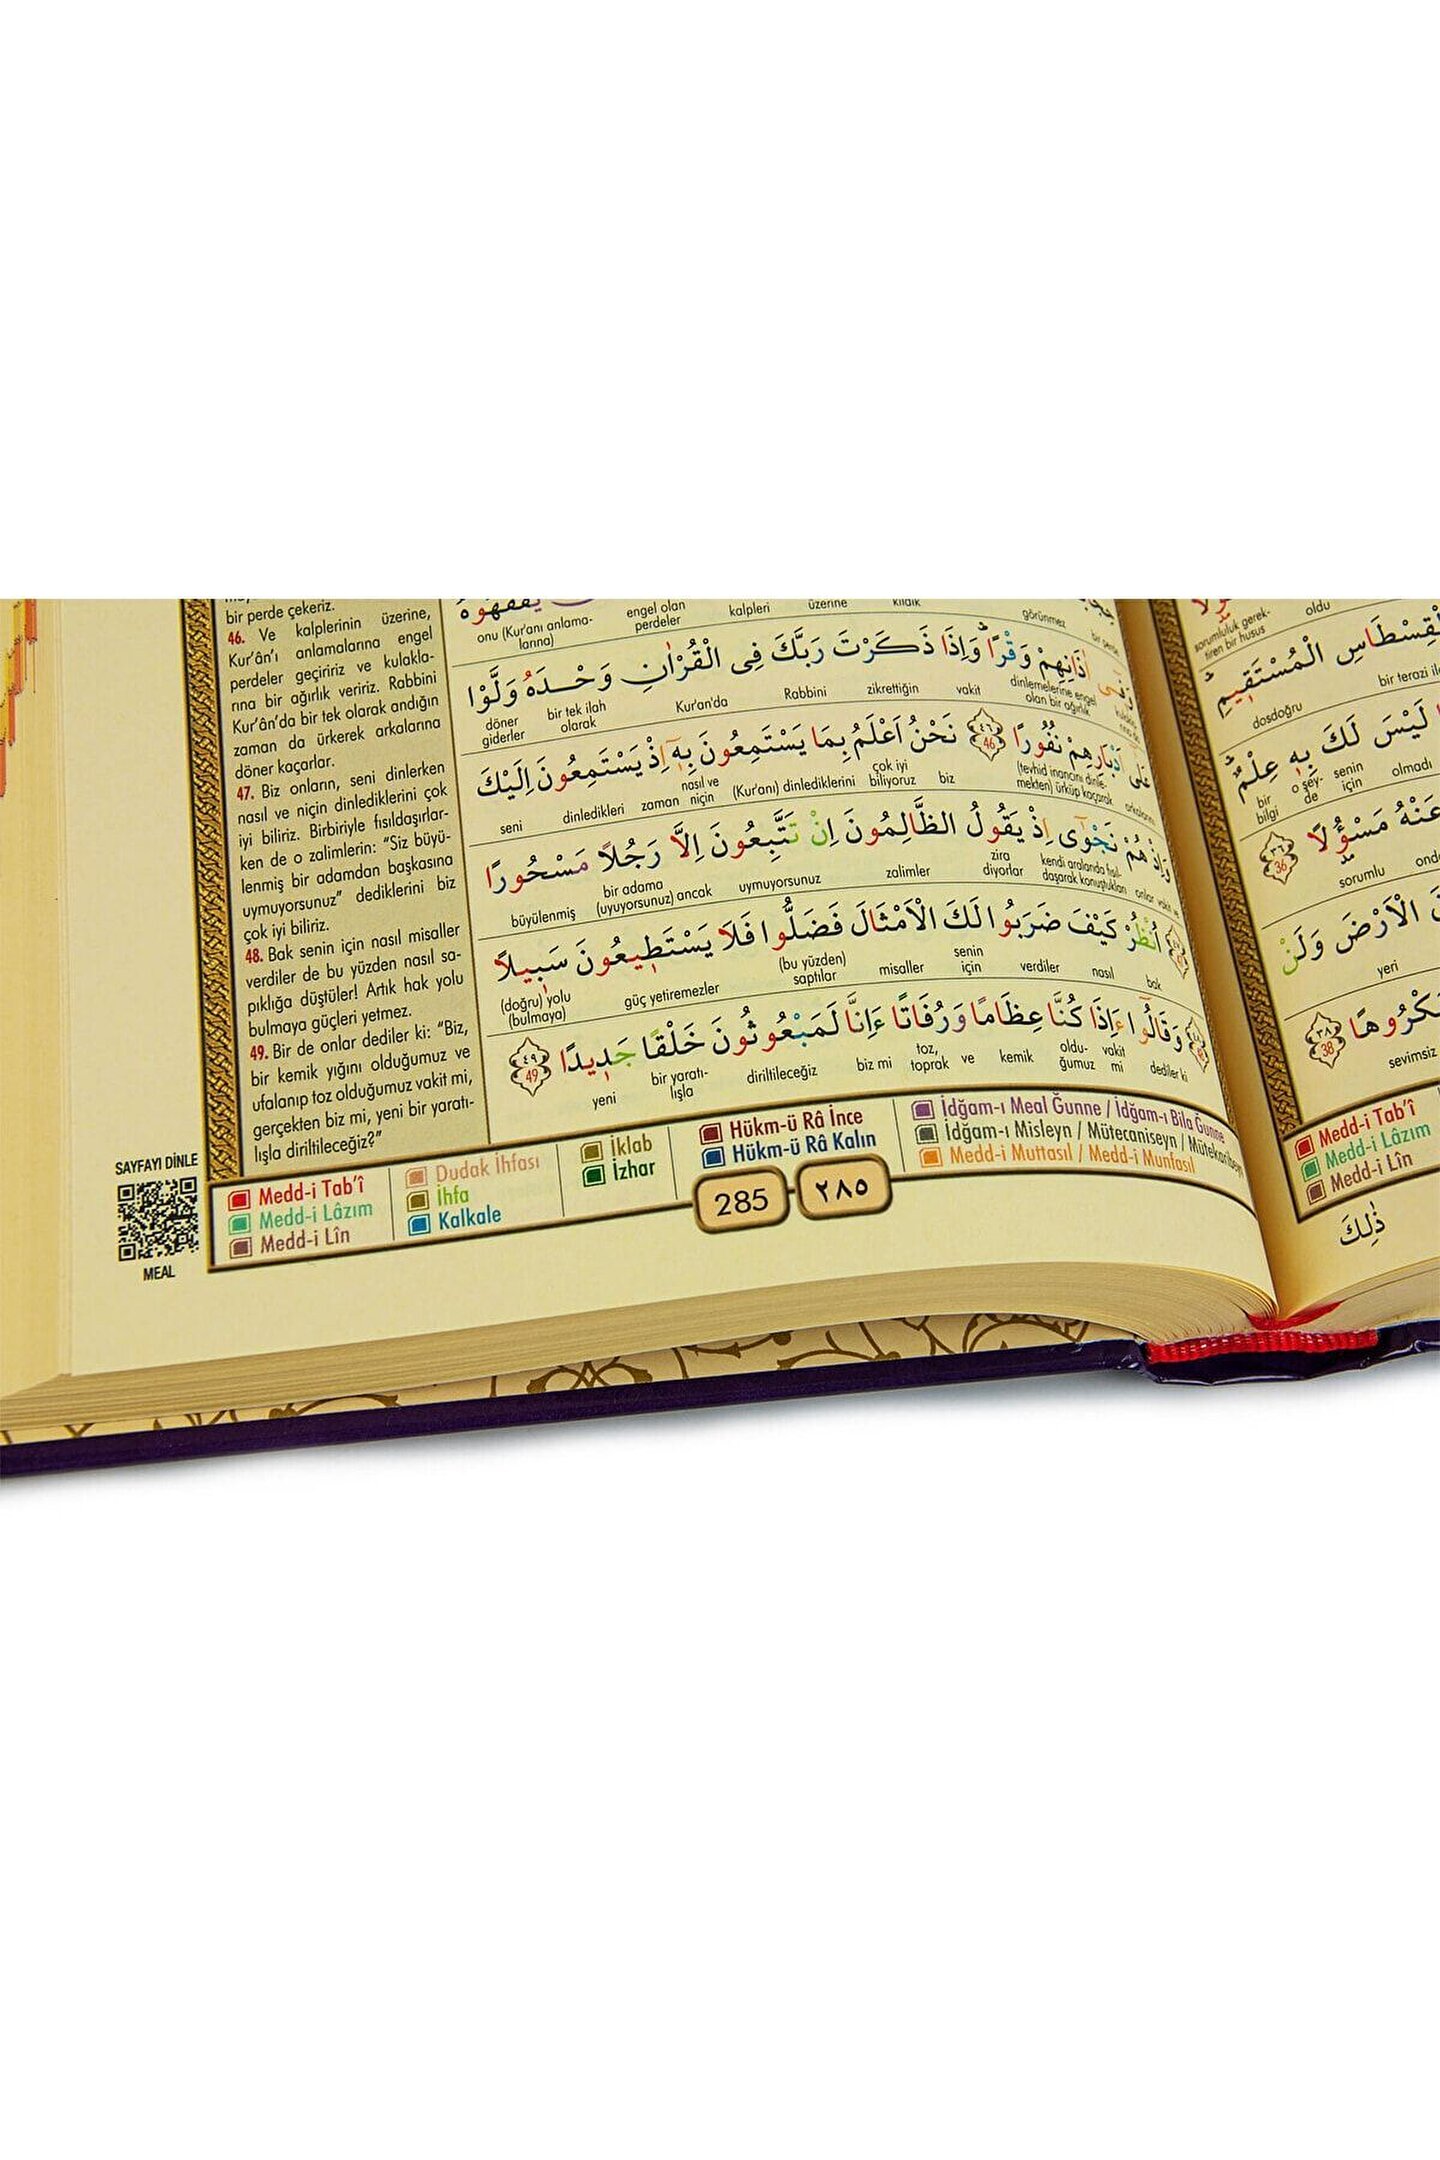 bir perde çekeriz.
46. Ve kalplerinin üzerine,
Kur'ân'ı anlamalarına engel
perdeler geçiririz ve kulakla-
rına bir ağırlık veririz. Rabbini
Kur'ân'da bir tek olarak andığın
zaman da ürkerek arkalarına
döner kaçarlar.
47. Biz onların, seni dinlerken
nasıl ve niçin dinlediklerini çok
iyi biliriz. Birbiriyle fısıldaşırlar-
ken de o zalimlerin: “Siz büyü-
lenmiş bir adamdan başkasına
uymuyorsunuz” dediklerini biz
çok iyi biliriz.
48. Bak senin için nasıl misaller
verdiler de bu yüzden nasıl sa-
pıklığa düştüler! Artık hak yolu
bulmaya güçleri yetmez.
49. Bir de onlar dediler ki: “Biz,
bir kemik yığını olduğumuz ve
ufalanıp toz olduğumuz vakit mi,
gerçekten biz mi, yeni bir yaratı-
lışla diriltileceğiz?”
يَفْقَهُوهُ
onu (Kur'anı anlama-
larına)
engel olan
perdeler
kalpleri
üzerine
kıldık
görünmez
bir perde
اٰذَانِهِمْ وَقْرًاۜ وَاِذَا ذَكَرْتَ رَبَّكَ فِى الْقُرْاٰنِ وَحْدَهُ وَلَّوْا
döner
giderler
bir tek ilah
olarak
Kur'an'da
Rabbini
zikrettiğin
vakit
dinlemelerine engel
olan bir ağırlık
عَلٰى اَدْبَارِهِمْ نُفُورًا ٤٦ 46 نَحْنُ اَعْلَمُ بِمَا يَسْتَمِعُونَ بِهٖٓ اِذْ يَسْتَمِعُونَ اِلَيْكَ
seni
dinledikleri
zaman
nasıl ve
niçin
(Kur'anı) dinlediklerini
çok iyi
biliyoruz
biz
(tevhid inancını dinle-
mekten) ürküp kaçarak
arkalarını
وَاِذْ هُمْ نَجْوٰٓى اِذْ يَقُولُ الظَّالِمُونَ اِنْ تَتَّبِعُونَ اِلَّا رَجُلًا مَسْحُورًا
büyülenmiş
bir adama
(uyuyorsunuz)
ancak
uymuyorsunuz
zalimler
zira
diyorlar
kendi aralarında fısıl-
daşarak konuştukları
onlar
vakit
ve
اُنْظُرْ كَيْفَ ضَرَبُوا لَكَ الْاَمْثَالَ فَضَلُّوا فَلَا يَسْتَطٖيعُونَ سَبٖيلًا
(doğru) yolu
(bulmaya)
güç yetiremezler
(bu yüzden)
saptılar
misaller
senin
için
verdiler
nasıl
bak
وَقَالُٓوا ءَاِذَا كُنَّا عِظَامًا وَرُفَاتًا ءَاِنَّا لَمَبْعُوثُونَ خَلْقًا جَدٖيدًا ٤٩ 49
yeni
bir yaratı-
lışla
diriltileceğiz
biz mi
toz,
toprak
ve
kemik
oldu-
ğumuz
vakit
mi
dediler ki
SAYFAYI DİNLE
MEAL
Medd-i Tab'î
Medd-i Lâzım
Medd-i Lîn
Dudak İhfası
İhfa
Kalkale
İklab
İzhar
Hükm-ü Râ İnce
Hükm-ü Râ Kalın
İdğam-ı Meal Ğunne / İdğam-ı Bila Ğunne
İdğam-ı Misleyn / Mütecaniseyn / Mütekaribeyn
Medd-i Muttasıl / Medd-i Munfasıl
285 ٢٨٥
sorumluluk gerek-
tiren bir husus
oldu
الْمُسْتَقٖيمِ
dosdoğru
bir terazi
لَيْسَ لَكَ بِهٖ عِلْمٌ
bir
bilgi
o şey-
de
senin
için
olmadı
عَنْهُ مَسْؤُلًا ٣٦ 36
sorumlu
الْاَرْضَ وَلَنْ
yeri
٣٨ 38
sevimsiz
Medd-i Tab'î
Medd-i Lâzım
Medd-i Lîn
ذٰلِكَ